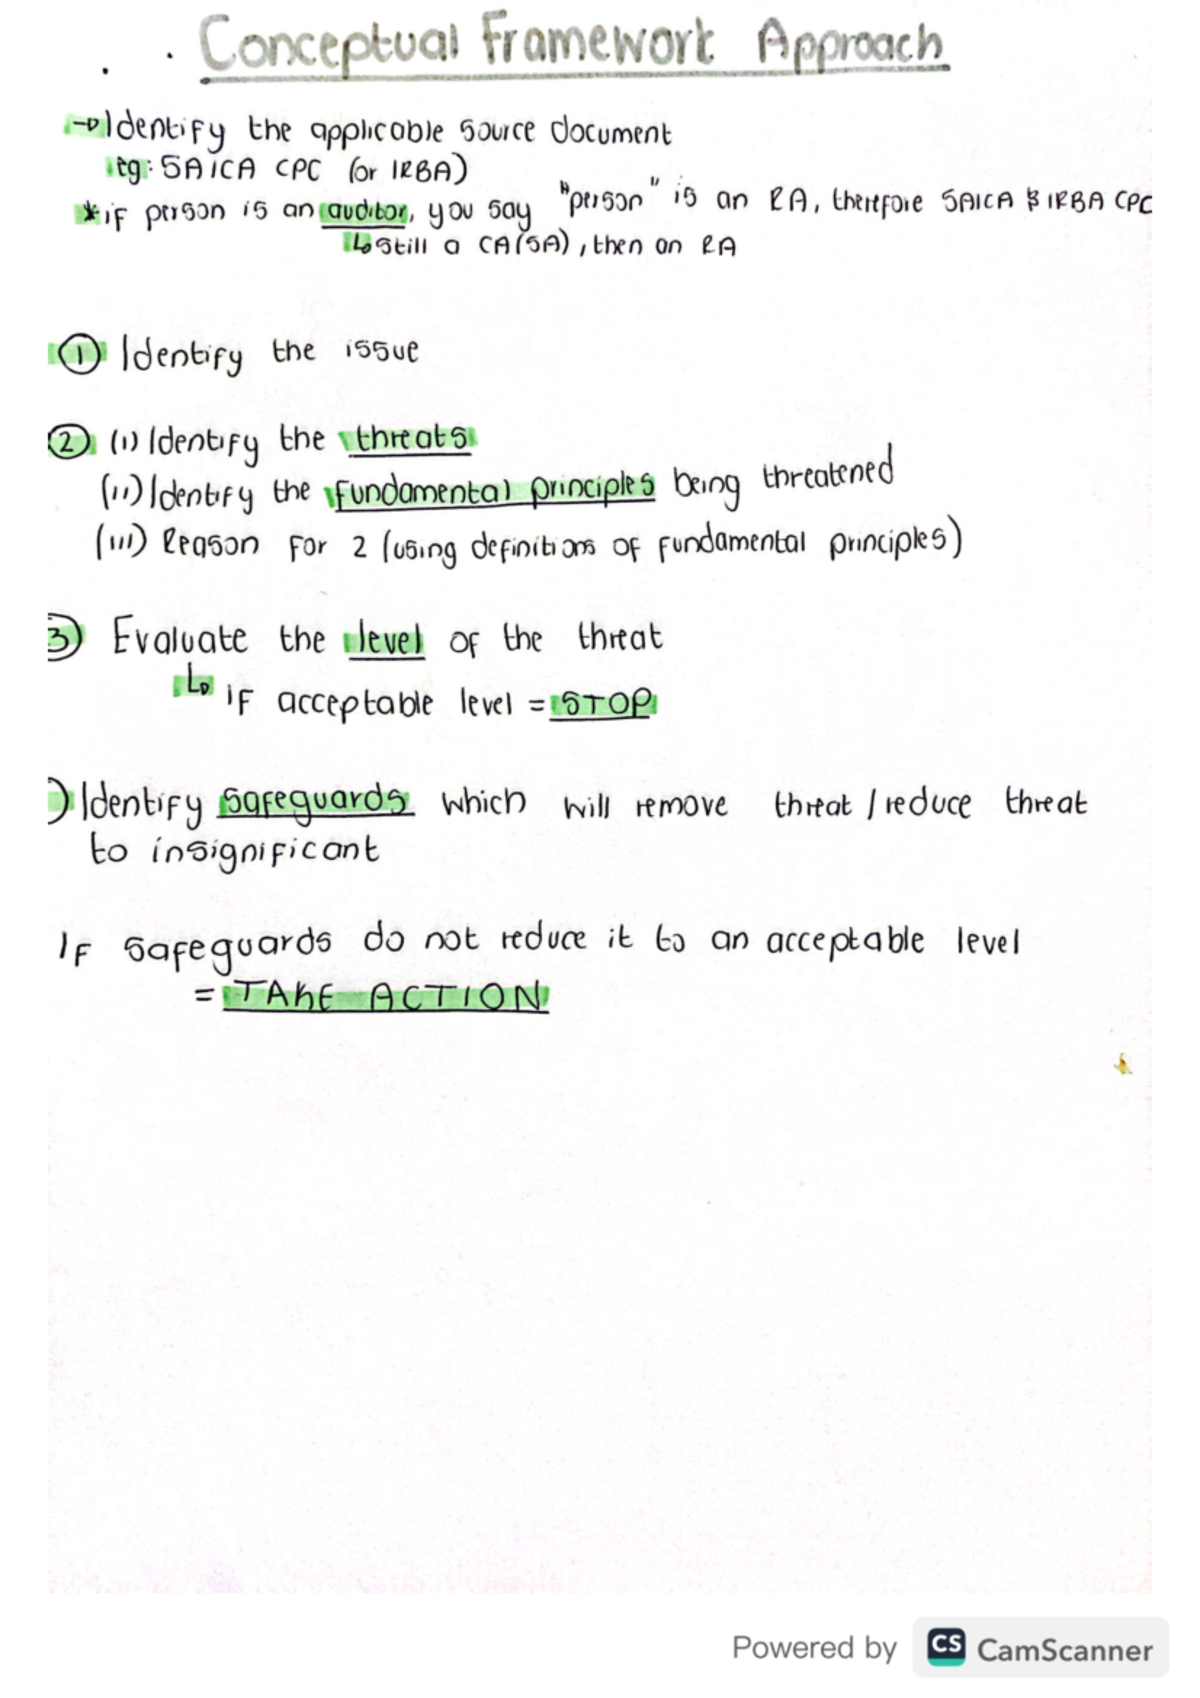 Conceptual Framework Approach
→Identify the applicable source document
eg: SAICA CPC (or IRBA)
*if person is an auditor, you say "person" is an RA, therefore SAICA & IRBA CPC
↳ still a CA(SA), then an RA
① Identify the issue
② (i) Identify the threats
(ii) Identify the fundamental principles being threatened
(iii) Reason for 2 (using definitions of fundamental principles)
3) Evaluate the level of the threat
↳ if acceptable level = STOP
) Identify safeguards which will remove threat / reduce threat
to insignificant
If safeguards do not reduce it to an acceptable level
= TAKE ACTION
Powered by CS CamScanner